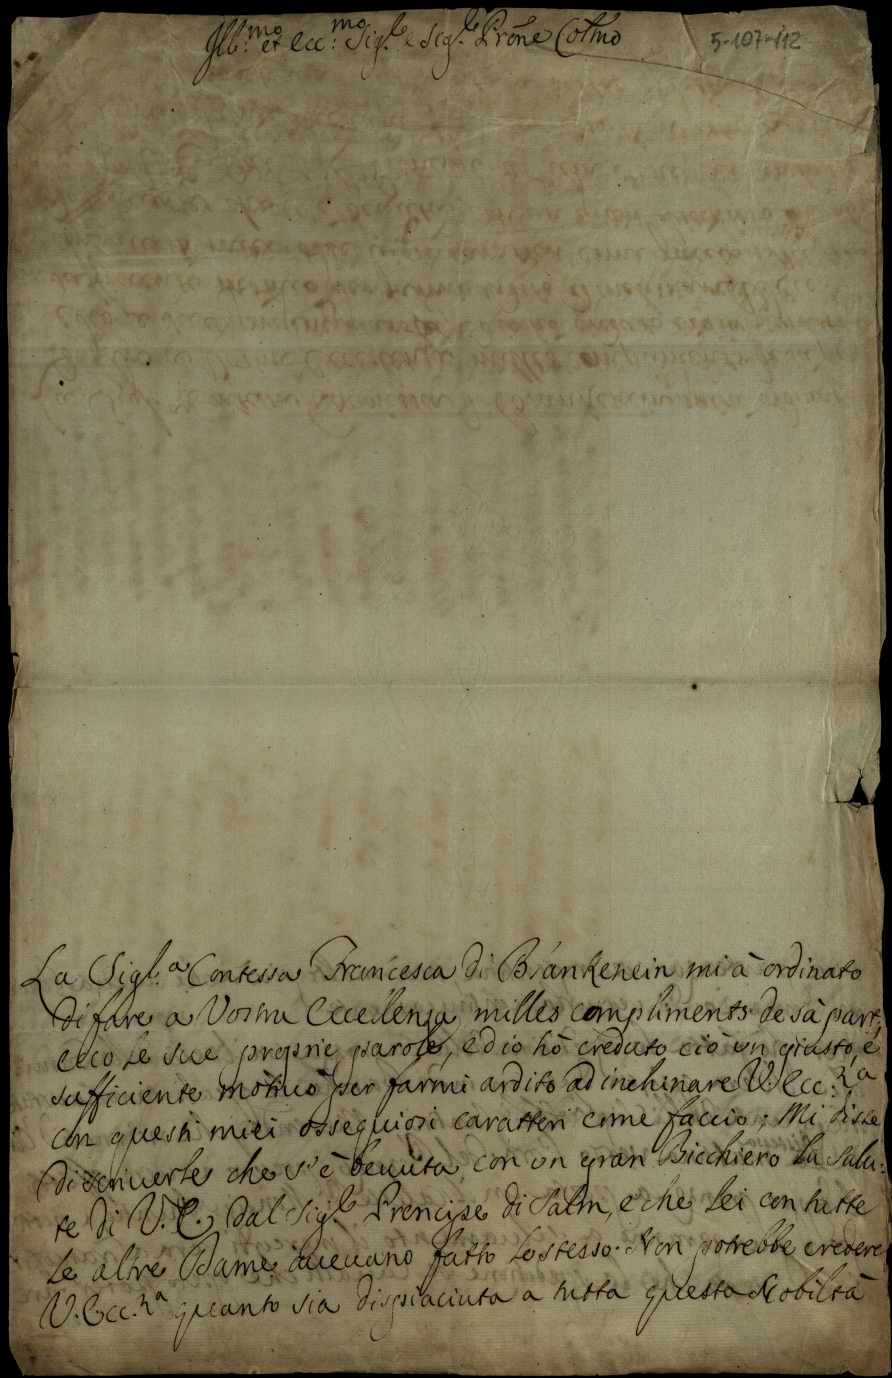 Ill:mo et ecc:mo Sig:le e Sig:le Prōne Col:mo
5-107-112
La Sigl:a Contessa Francesca di Blankenein mi à ordinato
di fare a Vostra Eccellenza milles compliments de sà part,
ecco le sue proprie parole, ed io hò creduto ciò un giusto, è
sufficiente motiuo per farmi ardito ad inchinare V. Ecc:za
con questi miei ossequiosi caratteri come faccio; Mi disse
di scriuerle che s'è beuuta con un gran Bicchiero la salu-
te di V. E. dal Sig:le Prencipe di Salm, e che lei con tutte
le altre Dame aueuano fatto lo stesso. Non potrebbe credere
V. Ecc:za quanto sia dispiaciuta a tutta questa Nobiltà